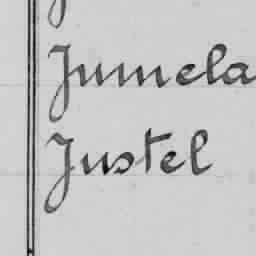 Jumela
Justel